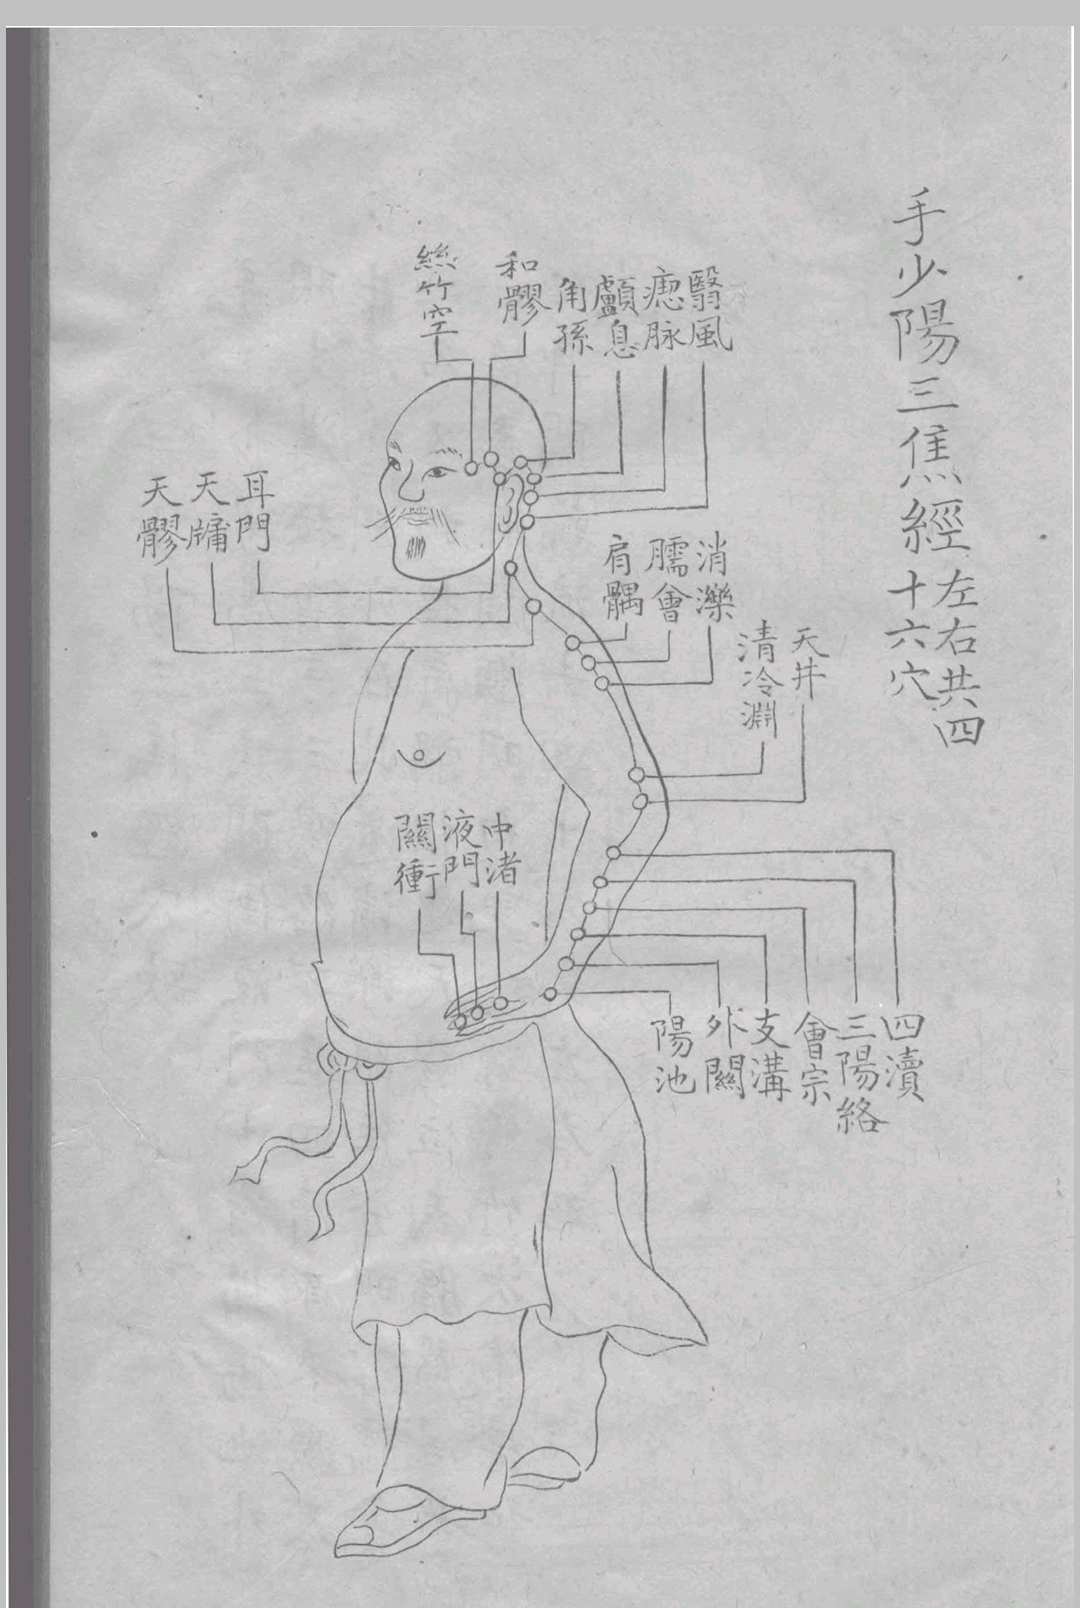 手少陽三焦經
左右共四
十六穴
翳風
瘛脉
顱息
角孫
和髎
絲竹空
耳門
天牖
天髎
消濼
臑會
肩髃
天井
清冷淵
中渚
液門
關衝
四瀆
三陽絡
會宗
支溝
外關
陽池